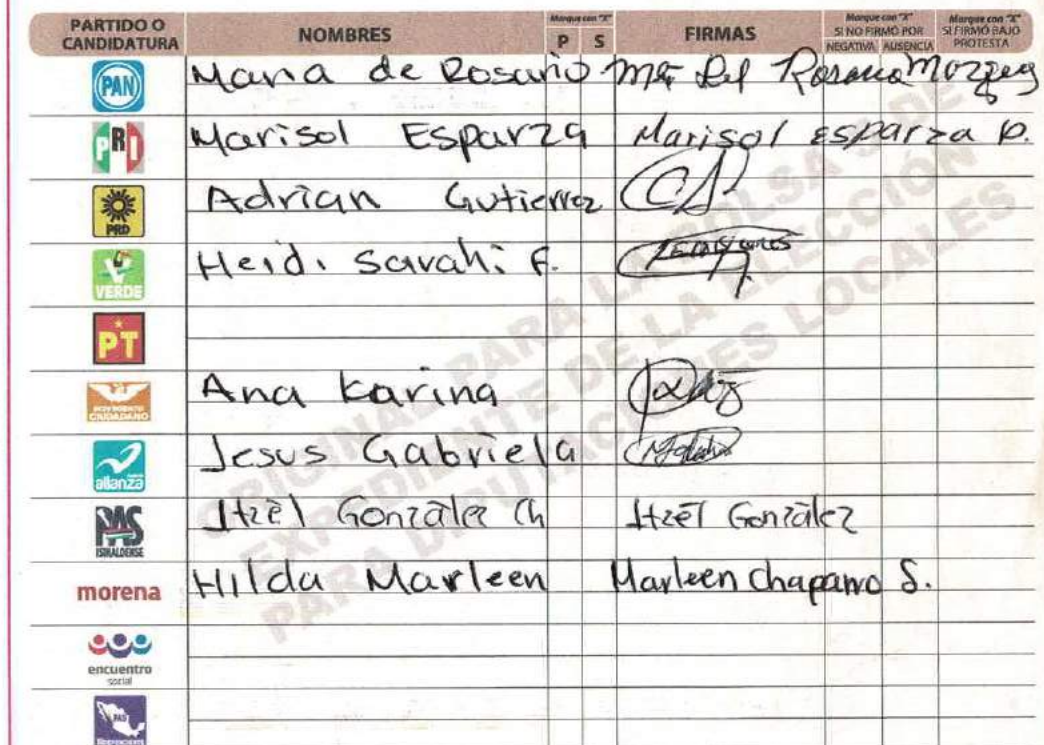 PARTIDO O CANDIDATURA NOMBRES Marque con "X" P S FIRMAS Marque con "X" SI NO FIRMÓ POR NEGATIVA AUSENCIA Marque con "X" SI FIRMÓ BAJO PROTESTA
PAN Maria de Rosario Ma Del Rosario
PRI Marisol Esparza Marisol esparza P.
PRD Adrian Gutierrez
VERDE Heidi Sarahi F.
PT
MOVIMIENTO CIUDADANO Ana Karina
alianza Jesus Gabriela
PAS SINALOENSE Itzel González Ch Itzel González
morena Hilda Marleen Marleen Chaparro S.
encuentro social
PAIS
ORIGINAL PARA LA BOLSA DE
EXPEDIENTE DE LA ELECCIÓN
PARA DIPUTACIONES LOCALES